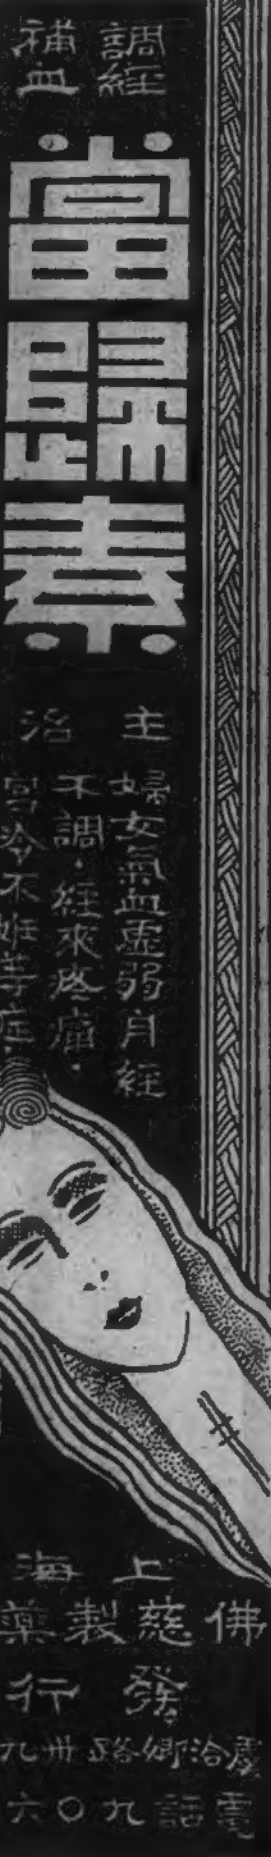 調經
補血
當歸素
主治
婦女氣血虛弱月經
不調．經來疼痛．
宮冷不姙等症．
上海
佛慈製藥
發行
虞洽卿路卅九
電話九〇六